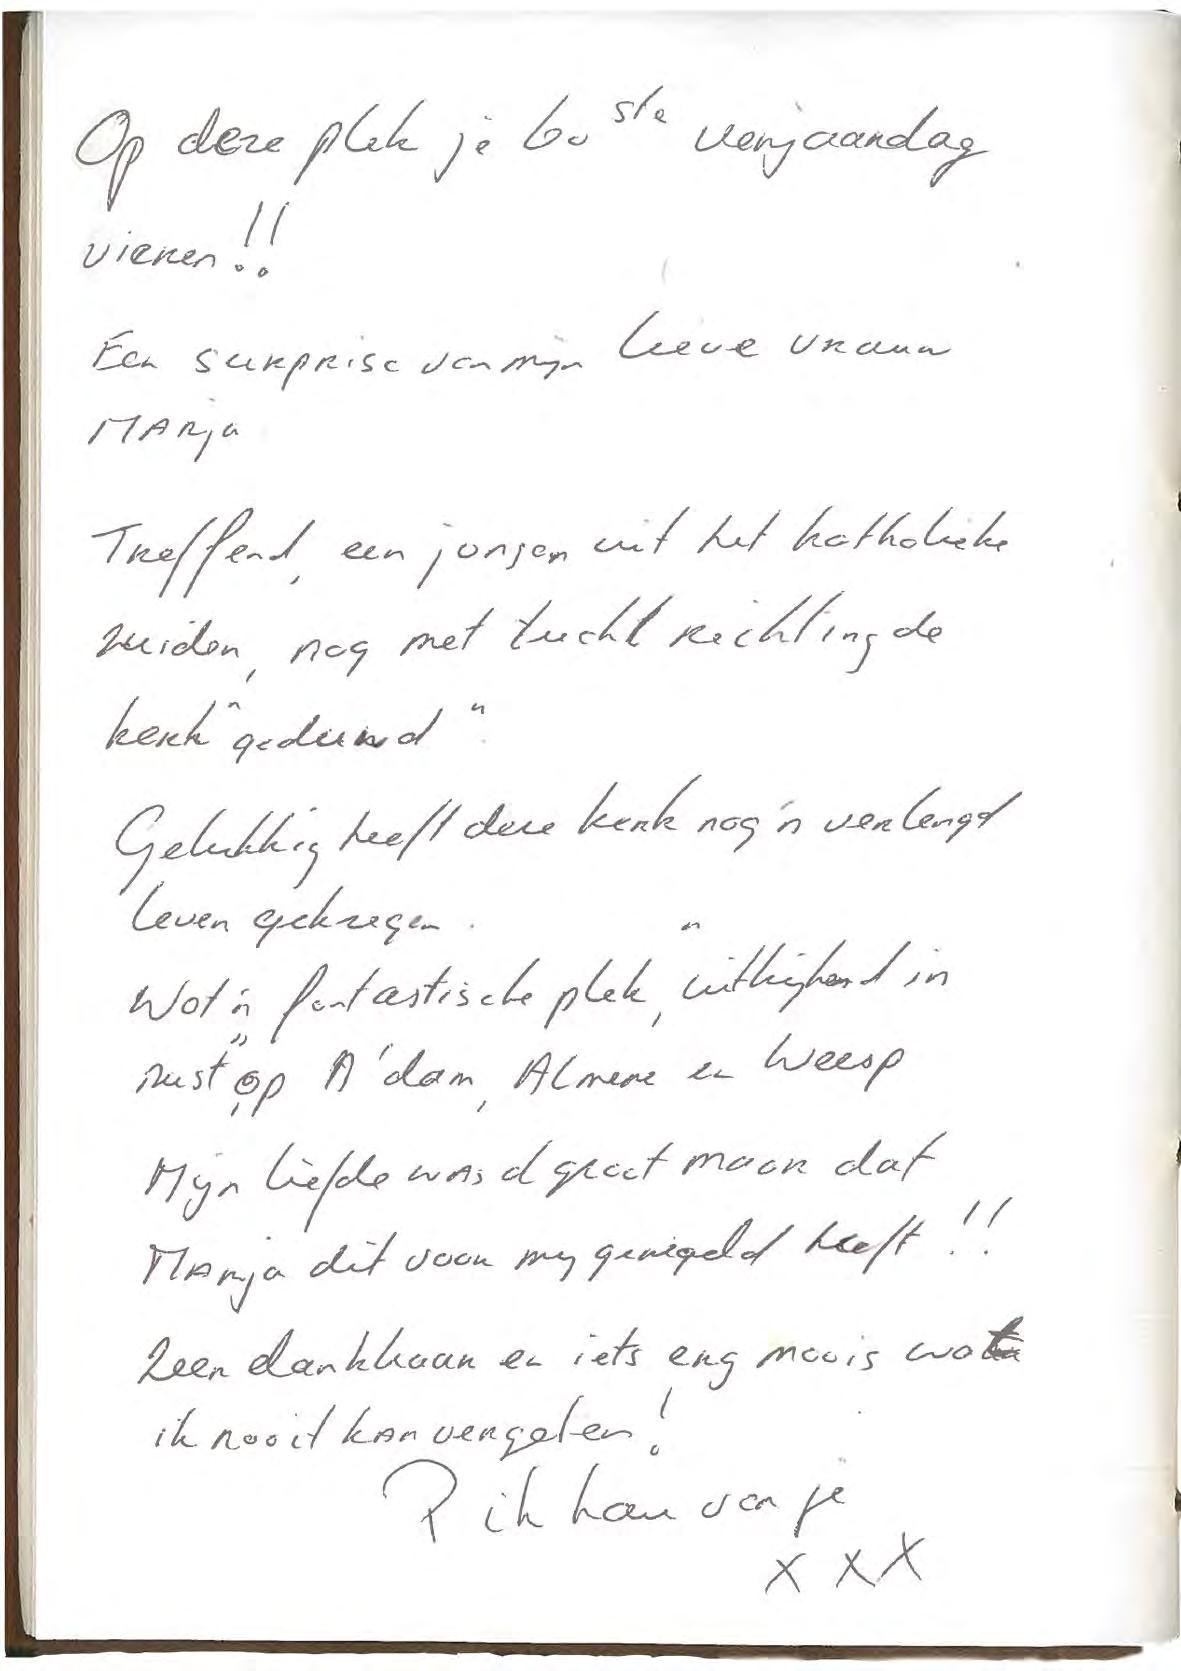 Op deze plek je 60 ste verjaardag
vieren!!
Een surprise van mijn lieve vrouw
Marja
Treffend, een jongen uit het katholieke
zuiden, nog met tucht richting de
kerk "geduwd".
Gelukkig heeft deze kerk nog 'n verlengd
leven gekregen.
Wat 'n fantastische plek, "uitkijkend in
rust" op A'dam, Almere en Weesp
Mijn liefde was groot maar dat
Marja dit voor mij geregeld heeft!!
Zeer dankbaar en iets erg moois wat
ik nooit kan vergeten!
P ik hou van je
x x x